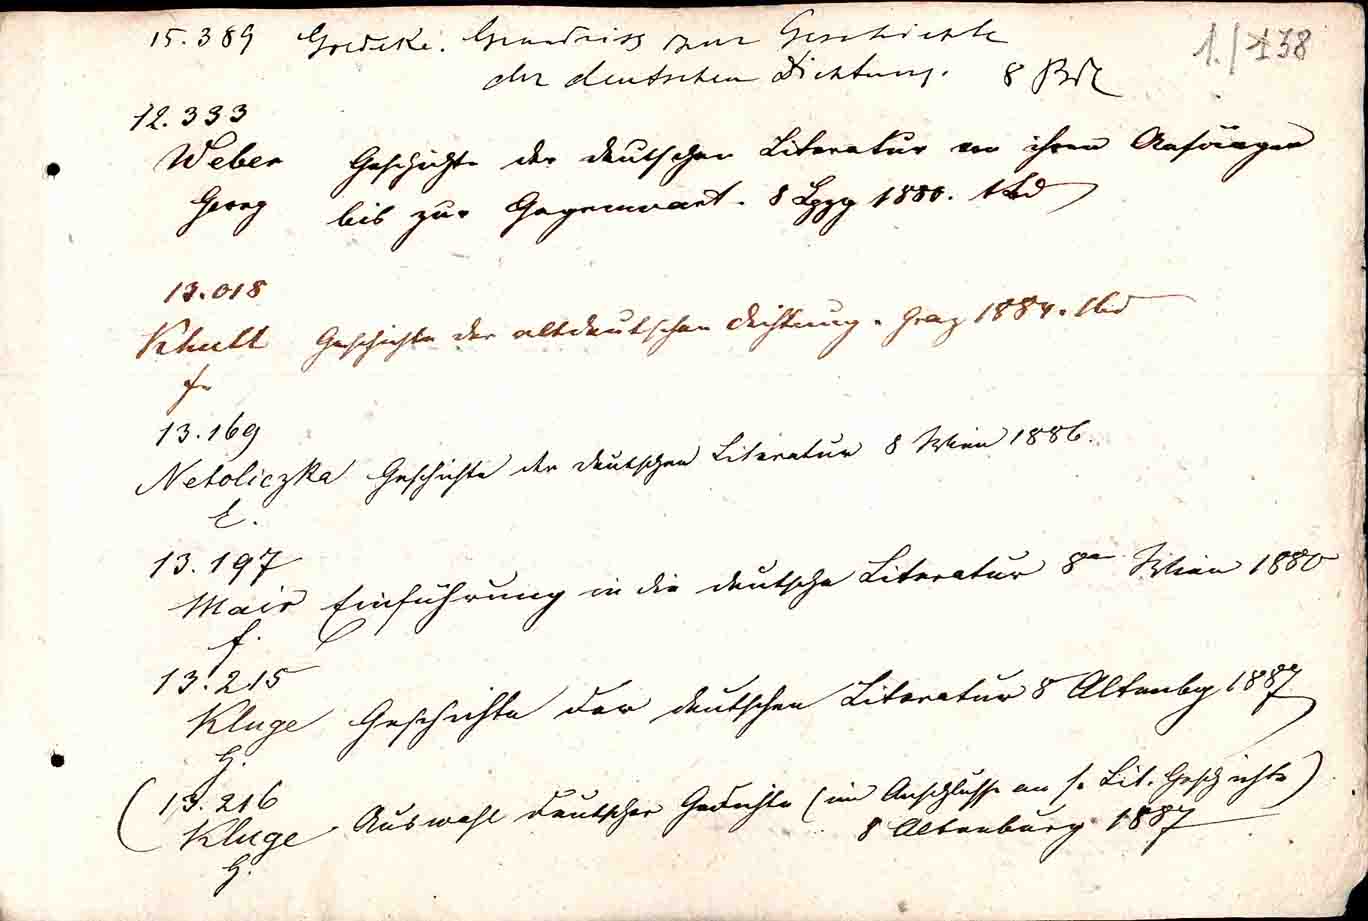 1./138
15.389 Goedeke. Grundriss zur Geschichte
der deutschen Dichtung. 8 Bde
12.333
Weber Geschichte der deutschen Literatur von ihren Anfängen
Georg bis zur Gegenwart. 8 Lpzg 1880. 1 Bd
13.018
Khull Geschichte der altdeutschen Dichtung. Graz 1884. 1 Bd
Fr
13.169
Netoliczka Geschichte der deutschen Literatur 8 Wien 1886.
E.
13.197
Mair Einführung in die deutsche Literatur 8° Wien 1880
F.
13.215
Kluge Geschichte der deutschen Literatur 8 Altenbg 1887
H.
(13.216
Kluge Auswahl deutscher Gedichte (im Anschlusse an s. Lit. Geschichte)
H. 8 Altenburg 1887